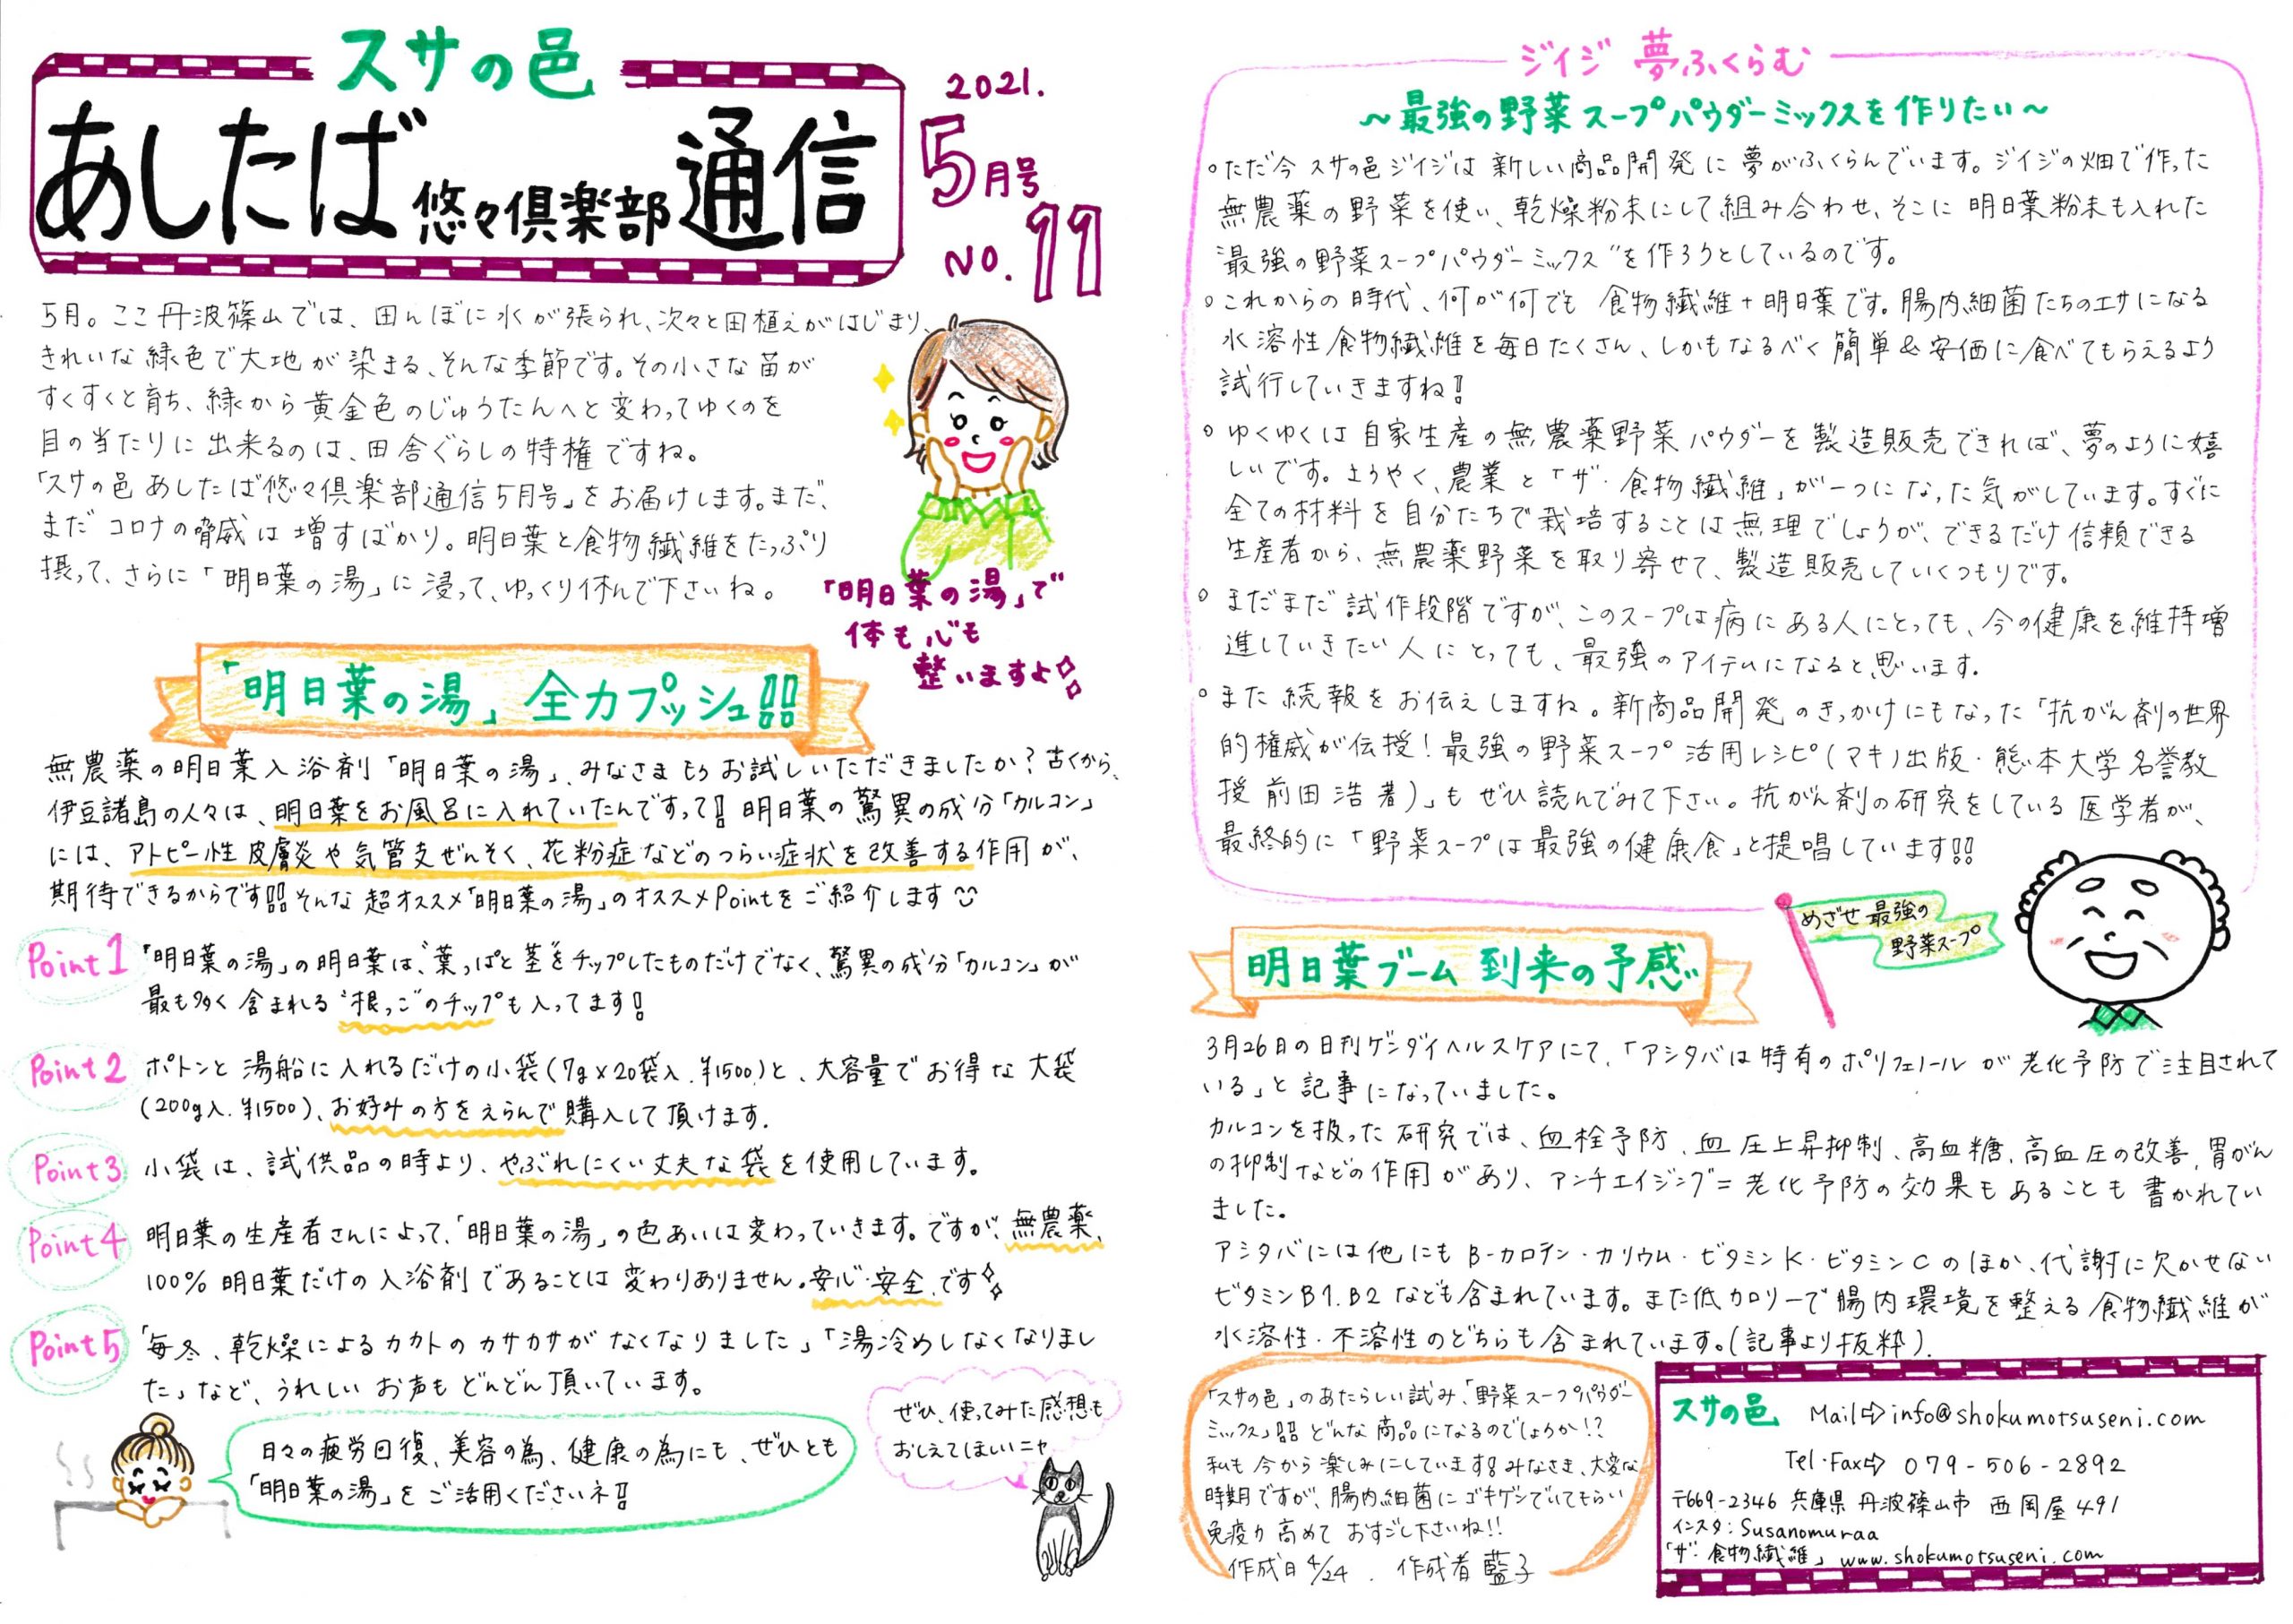 スサの邑
あしたば悠々倶楽部通信
2021.
5月号
NO.11
5月。ここ丹波篠山では、田んぼに水が張られ、次々と田植えがはじまり、
きれいな緑色で大地が染まる、そんな季節です。その小さな苗が
すくすくと育ち、緑から黄金色のじゅうたんへと変わってゆくのを
目の当たりに出来るのは、田舎ぐらしの特権ですね。
「スサの邑あしたば悠々倶楽部通信5月号」をお届けします。まだ、
まだコロナの脅威は増すばかり。明日葉と食物繊維をたっぷり
摂って、さらに「明日葉の湯」に浸って、ゆっくり休んで下さいね。
「明日葉の湯」で
体も心も
整いますよ
「明日葉の湯」全力プッシュ!!
無農薬の明日葉入浴剤「明日葉の湯」、みなさまもうお試しいただきましたか?古くから、
伊豆諸島の人々は、明日葉をお風呂に入れていたんですって!明日葉の驚異の成分「カルコン」
には、アトピー性皮膚炎や気管支ぜんそく、花粉症などのつらい症状を改善する作用が、
期待できるからです!!そんな超オススメ「明日葉の湯」のオススメPointをご紹介します
Point1 「明日葉の湯」の明日葉は、“葉っぱと茎”をチップしたものだけでなく、驚異の成分「カルコン」が
最も多く含まれる“根っこ”のチップも入ってます!
Point2 ポトンと湯船に入れるだけの小袋(7g×20袋入.¥1500)と、大容量でお得な大袋
(200g入.¥1500)、お好みの方をえらんで購入して頂けます.
Point3 小袋は、試供品の時より、やぶれにくい丈夫な袋を使用しています。
Point4 明日葉の生産者さんによって、「明日葉の湯」の色あいは変わっていきます。ですが、無農薬、
100%明日葉だけの入浴剤であることは変わりありません。安心・安全、です
Point5 「毎冬、乾燥によるカカトのカサカサがなくなりました」「湯冷めしなくなりまし
た」など、うれしいお声もどんどん頂いています。
日々の疲労回復、美容の為、健康の為にも、ぜひとも
「明日葉の湯」をご活用くださいネ!!
ぜひ、使ってみた感想も
おしえてほしいニャ
ジイジ 夢ふくらむ
～最強の野菜スープパウダーミックスを作りたい～
○ただ今スサの邑ジイジは新しい商品開発に夢がふくらんでいます。ジイジの畑で作った
無農薬の野菜を使い、乾燥粉末にして組み合わせ、そこに明日葉粉末も入れた
“最強の野菜スープパウダーミックス”を作ろうとしているのです。
○これからの時代、何が何でも食物繊維+明日葉です。腸内細菌たちのエサになる
水溶性食物繊維を毎日たくさん、しかもなるべく簡単&安価に食べてもらえるよう
試行していきますね!
○ゆくゆくは自家生産の無農薬野菜パウダーを製造販売できれば、夢のように嬉
しいです。ようやく、農業と「ザ・食物繊維」が一つになった気がしています。すぐに
全ての材料を自分たちで栽培することは無理でしょうが、できるだけ信頼できる
生産者から、無農薬野菜を取り寄せて、製造販売していくつもりです。
○まだまだ試作段階ですが、このスープは病にある人にとっても、今の健康を維持増
進していきたい人にとっても、最強のアイテムになると思います.
○また続報をお伝えしますね。新商品開発のきっかけにもなった「抗がん剤の世界
的権威が伝授!最強の野菜スープ活用レシピ(マキノ出版・熊本大学名誉教
授前田浩著)」もぜひ読んでみて下さい。抗がん剤の研究をしている医学者が、
最終的に「野菜スープは最強の健康食」と提唱しています!!
めざせ最強の
野菜スープ
明日葉ブーム到来の予感
3月26日の日刊ゲンダイヘルスケアにて、「アシタバは特有のポリフェノールが老化予防で注目されて
いる」と記事になっていました。
カルコンを扱った研究では、血栓予防、血圧上昇抑制、高血糖、高血圧の改善、胃がん
の抑制などの作用があり、アンチエイジング=老化予防の効果もあることも書かれてい
ました。
アシタバには他にもβ-カロテン・カリウム・ビタミンK・ビタミンCのほか、代謝に欠かせない
ビタミンB1.B2なども含まれています。また低カロリーで腸内環境を整える食物繊維が
水溶性・不溶性のどちらも含まれています。(記事より抜粋).
「スサの邑」のあたらしい試み、「野菜スープパウダー
ミックス」!!どんな商品になるのでしょうか!?
私も今から楽しみにしています!みなさま、大変な
時期ですが、腸内細菌にゴキゲンでいてもらい
免疫力高めておすごし下さいね!!
作成日4/24. 作成者 藍子
スサの邑 Mail⇨info@shokumotsuseni.com
Tel・Fax⇨079-506-2892
〒669-2346 兵庫県丹波篠山市西岡屋491
インスタ:Susanomuraa
「ザ・食物繊維」www.shokumotsuseni.com